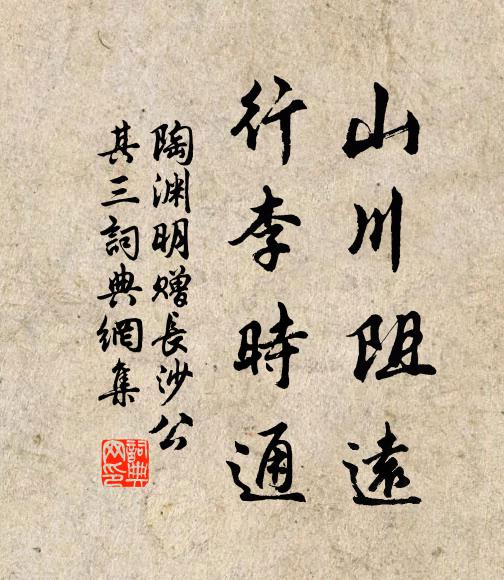 山川阻遠
行李時通
陶渊明赠長沙公
其三詞典網集
詞典网印